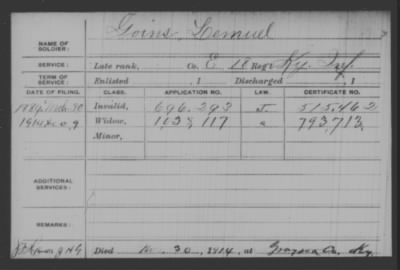 Goins, Lemuel
NAME OF SOLDIER:
SERVICE: Late rank, Co. E 18 Reg't Ky. Inf.
TERM OF SERVICE: Enlisted , 1 Discharged , 1
DATE OF FILING. CLASS. APPLICATION NO. LAW. CERTIFICATE NO.
30 Invalid, 696.293 J. 515.462
1914 9 Widow, 1038 117 a 793,713
Minor,
ADDITIONAL SERVICES:
REMARKS:
Died 30, 1914, at Grayson Co. Ky.